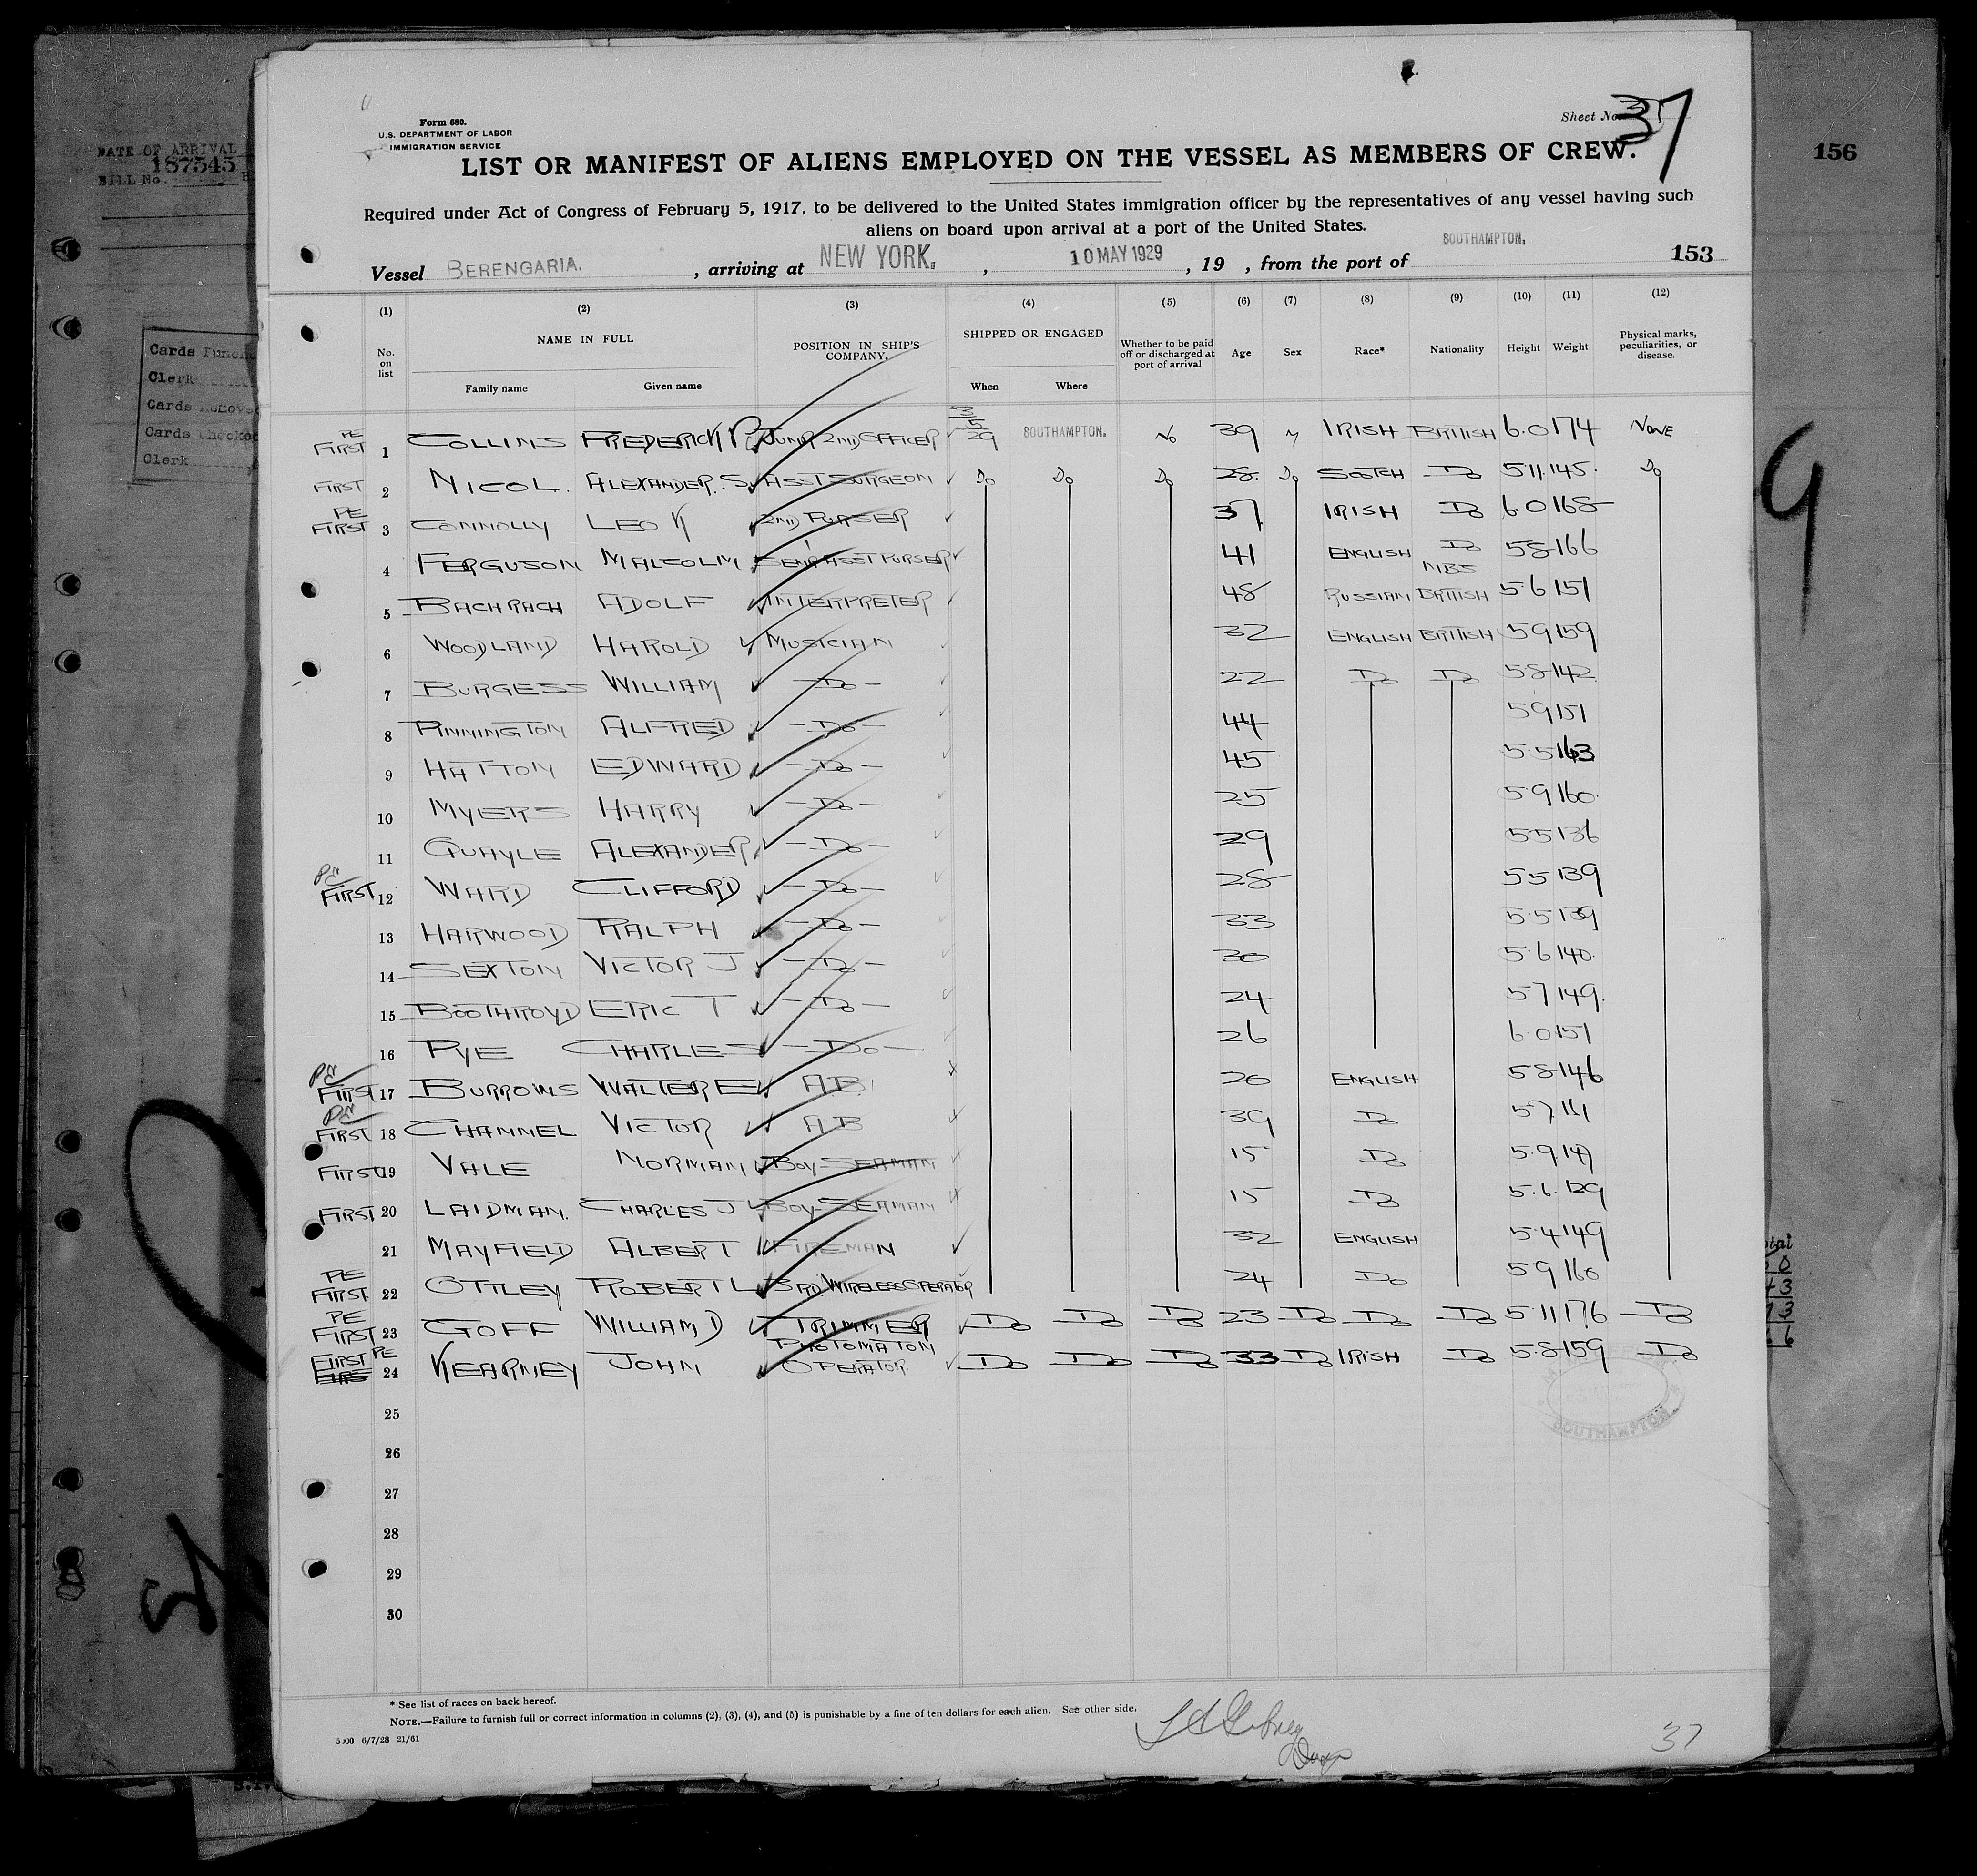 Form 680.
U.S. DEPARTMENT OF LABOR
IMMIGRATION SERVICE
Sheet No. 37
DATE OF ARRIVAL
187545
BILL No.
156
LIST OR MANIFEST OF ALIENS EMPLOYED ON THE VESSEL AS MEMBERS OF CREW.
Required under Act of Congress of February 5, 1917, to be delivered to the United States immigration officer by the representatives of any vessel having such
aliens on board upon arrival at a port of the United States.
Vessel BERENGARIA. , arriving at NEW YORK. , 10 MAY 1929 , 19 , from the port of SOUTHAMPTON. 153
(1) (2) (3) (4) (5) (6) (7) (8) (9) (10) (11) (12)
No. on list NAME IN FULL Family name Given name POSITION IN SHIP'S COMPANY. SHIPPED OR ENGAGED When Where Whether to be paid off or discharged at port of arrival Age Sex Race* Nationality Height Weight Physical marks, peculiarities, or disease.
Cards
Clerk
Cards
Cards checked
Clerk
PE FIRST 1 COLLINS FREDERICK P. JUNR 2ND OFFICER 3/5/29 SOUTHAMPTON. No 39 M IRISH BRITISH 6.0 174 NONE
FIRST 2 NICOL. ALEXANDER. S. ASST SURGEON Do Do Do 28. Do SCOTCH Do 5.11. 145. Do
PE FIRST 3 CONNOLLY LEO K 2ND PURSER 37 IRISH Do 6.0 168
4 FERGUSON MALCOLM SENR ASST PURSER 41 ENGLISH Do 5 8 166
5 BACHRACH ADOLF INTERPRETER 48 RUSSIAN NBS BRITISH 5.6 151
6 WOODLAND HAROLD MUSICIAN 32 ENGLISH BRITISH 5 9 159
7 BURGESS WILLIAM - Do - 22 Do Do 5 8 142
8 PINNINGTON ALFRED - Do - 44 5 9 151
9 HATTON EDWARD - Do - 45 5.5 163
10 MYERS HARRY - Do - 25 5.9 160.
11 QUAYLE ALEXANDER - Do - 29 5 5 136
PE FIRST 12 WARD CLIFFORD - Do - 28 5 5 139
13 HARWOOD RALPH - Do - 33 5.5 139
14 SEXTON VICTOR J - Do - 30 5.6 140.
15 BOOTHROYD ERIC T - Do - 24 5 7 149.
16 PYE CHARLES - Do - 26 6.0 151
PE FIRST 17 BURROWS WALTER E AB. 20 ENGLISH 5 8 146
PE FIRST 18 CHANNEL VICTOR AB 39 Do 5.7 161
FIRST 19 VALE NORMAN BOY SEAMAN 15 Do 5.9. 147
FIRST 20 LAIDMAN. CHARLES J BOY SEAMAN 15 Do 5.6. 129
21 MAYFIELD ALBERT FIREMAN 32 ENGLISH 5.4 149
PE FIRST. 22 OTTLEY ROBERT L 3RD. WIRELESS OPERATOR 24 Do 5 9 160
PE FIRST 23 GOFF WILLIAM D TRIMMER Do Do Do 23 Do Do Do 5.11 176 Do
FIRST PE 24 KEARNEY JOHN PHOTOMATON OPERATOR. Do Do Do 33 Do IRISH Do 5.8 159 Do
25
26
27
28
29
30
SOUTHAMPTON
* See list of races on back hereof.
NOTE.—Failure to furnish full or correct information in columns (2), (3), (4), and (5) is punishable by a fine of ten dollars for each alien. See other side.
6/7/28 21/61
37